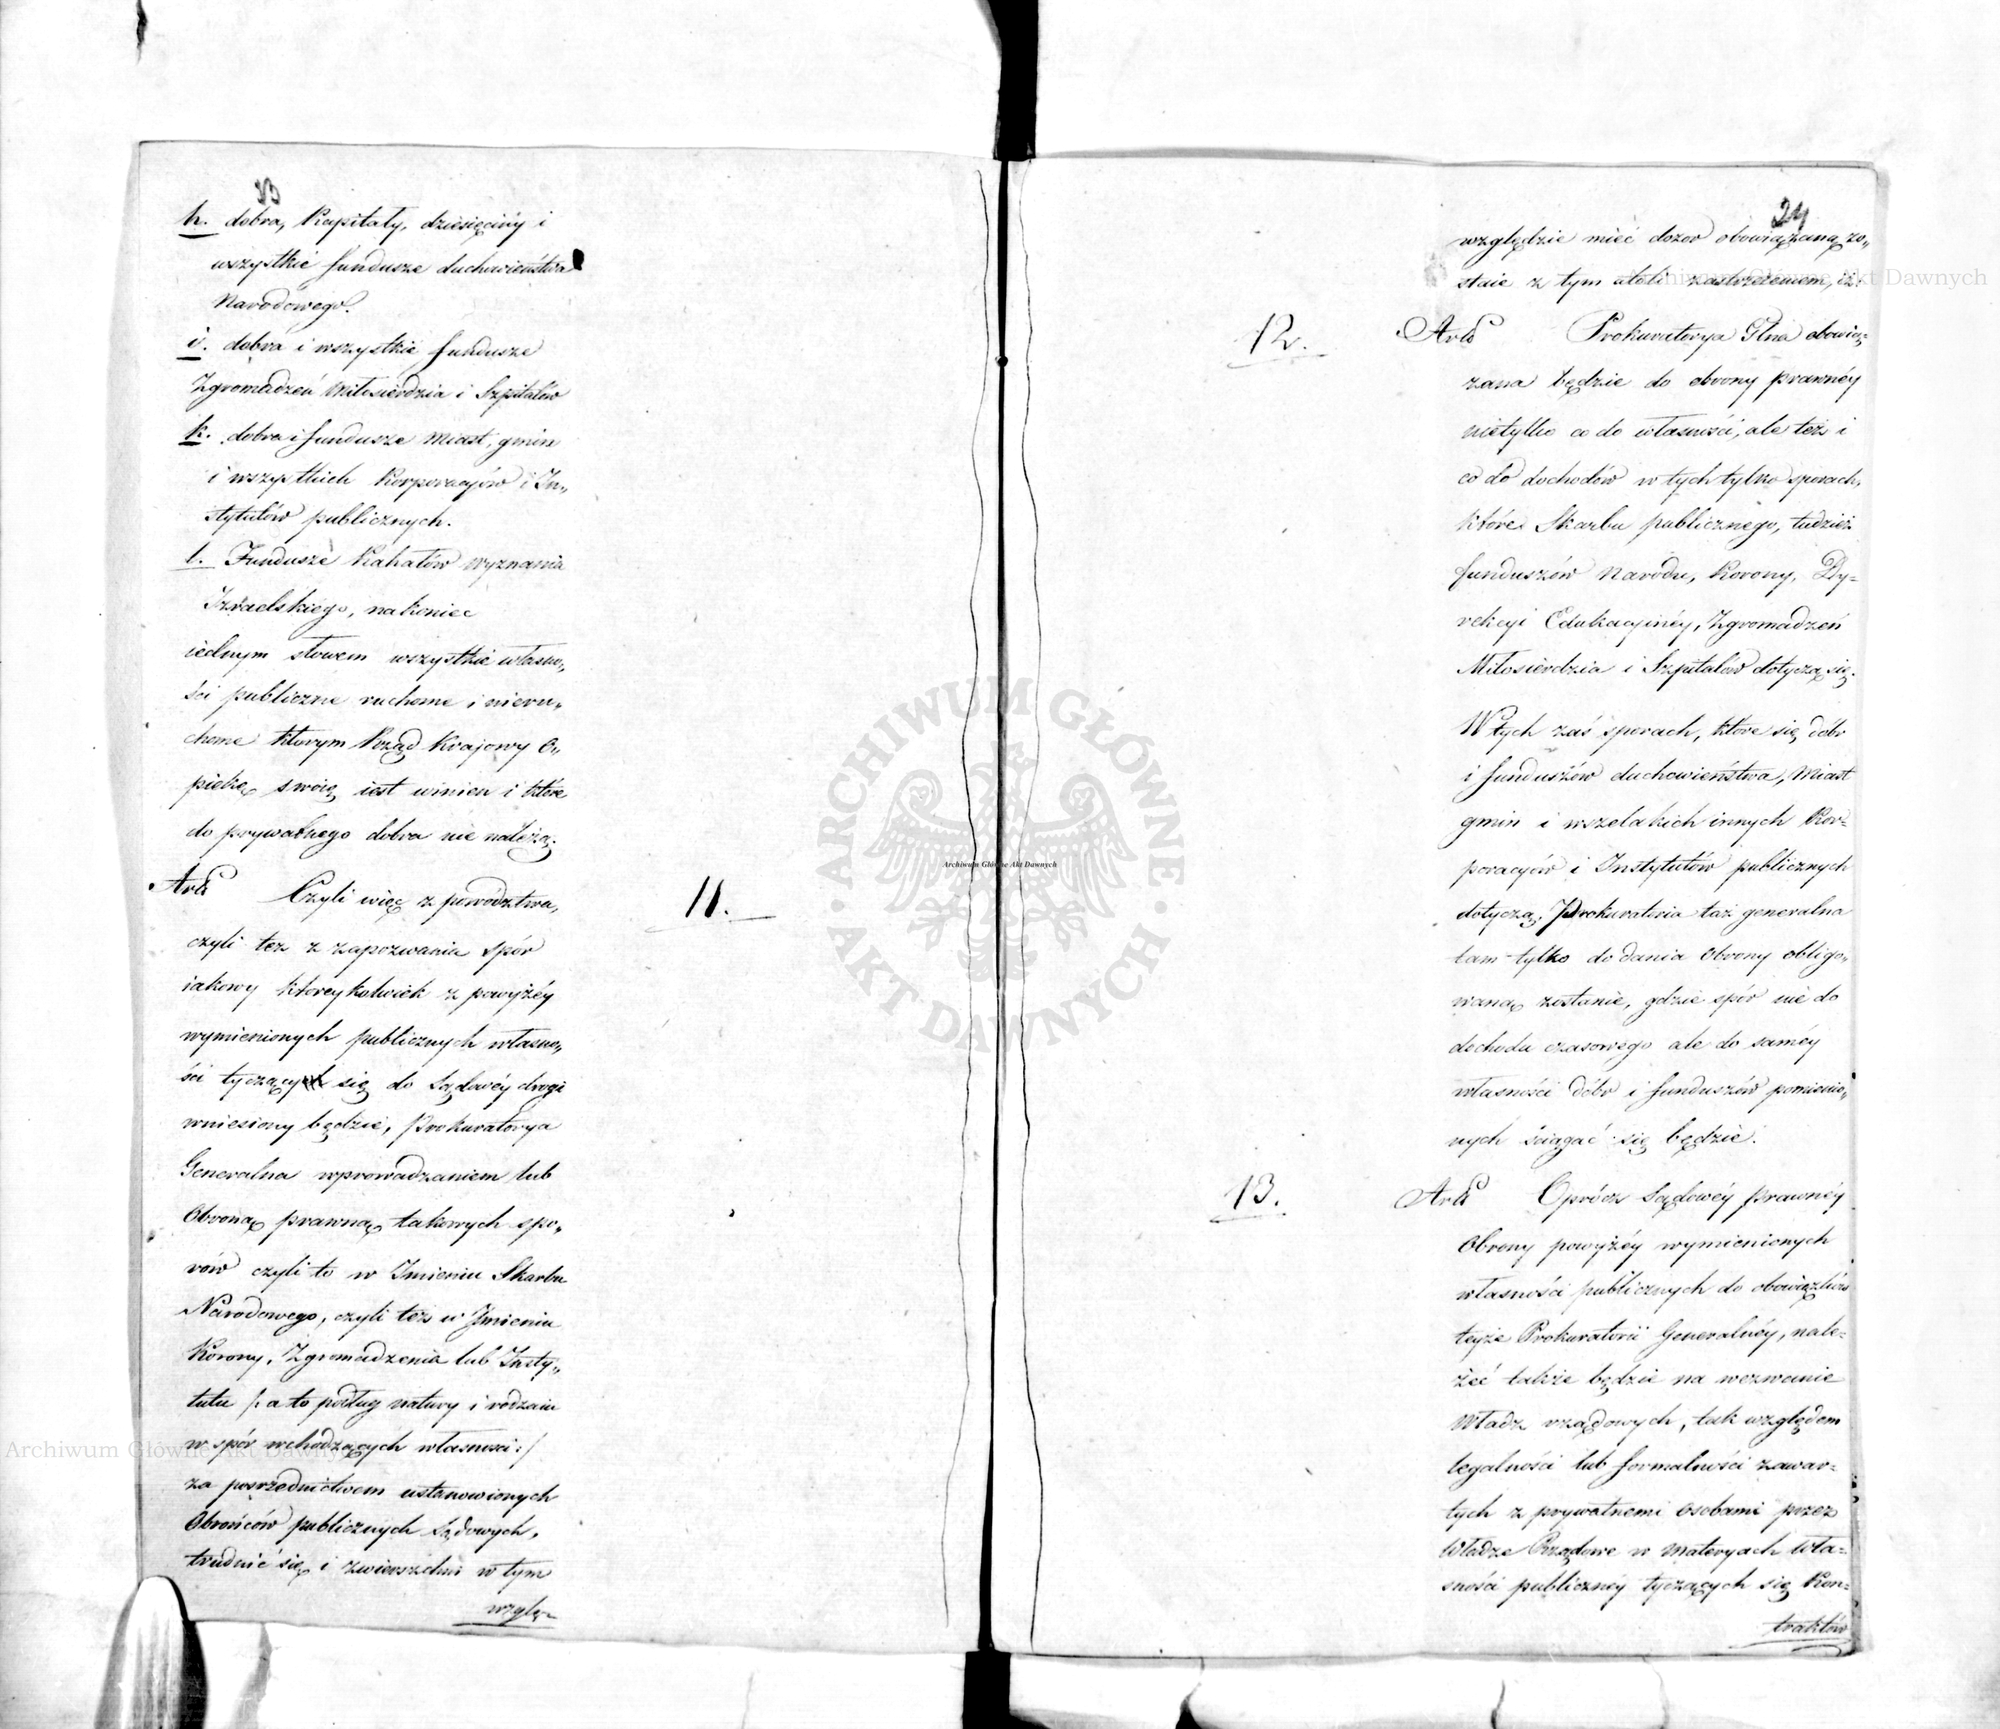 h. dobra, Kapitały, dziesięciny i
wszystkie fundusze duchowieństwa
Narodowego.
i. dobra i wszystkie fundusze
Zgromadzeń Miłosierdzia i Szpitalów
k. dobra i fundusze Miast, gmin
i wszystkich Korporacyiów i In„
stytutów publicznych.
l. Fundusze Kahałów wyznania
Izraelskiego, nakoniec
iednym słowem wszystkie własno„
ści publiczne ruchome i nieru„
chome którym Rząd Krajowy o„
piekę swoię iest winien i które
do prywatnego dobra nie należą.
Art. 11.
Czyli więc z powództwa,
czyli też z zapozwania spór
iakowy któreykolwiek z powyżéy
wymienionych publicznych własno„
ści tyczący się do Sądowéy drogi
wniesiony będzie, Prokuratorya
Generalna wprowadzaniem lub
Obroną prawną takowych spo„
rów czyli to w Imieniu Skarbu
Narodowego, czyli też w Imieniu
Korony, Zgromadzenia lub Insty„
tutu /: a to podług natury i rodzaiu
w spór wchodzących własności :/
za posrzednictwem ustanowionych
Obrońców publicznych Sądowych,
trudnić się i zwierzchni w tym
wzglę„
24
względzie mieć dozor obowiązaną zo„
staie z tym atoli zastrzeżeniem, iż:
Art. 12.
Prokuratorya Glna obowią„
zana będzie do obrony prawnéy
nietylko co do własności, ale też i
co do dochodów w tych tylko sporach,
które Skarbu publicznego, tudzież
funduszów Narodu, Korony, Dy„
rekcyi Edukacyinéy, Zgromadzeń
Miłosierdzia i Szpitalów dotyczą się.
W tych zaś sporach, które się dóbr
i funduszów duchowieństwa, Miast
gmin i wszelakich innych Kor„
poracyiów i Instytutów publicznych
dotyczą, Prokuratoria taż generalna
tam tylko do dania Obrony obligo„
waną zostanie, gdzie spór nie do
dochodu czasowego ale do saméy
własności dóbr i funduszów pomienio„
nych ściągać się będzie.
Art. 13.
Oprócz Sądowéy prawnéy
Obrony powyżéy wymienionych
własności publicznych do obowiązków
teyże Prokuratorii Generalnéy, nale„
żeć także będzie na wezwanie
Władz rządowych, tak względem
legalności lub formalności zawar„
tych z prywatnemi osobami przez
Władze Rządowe w materyach wła„
sności publicznéy tyczących się Kon„
traktów
ARCHIWUM GŁÓWNE AKT DAWNYCH
Archiwum Główne Akt Dawnych
Archiwum Główne Akt Dawnych
Archiwum Główne Akt Dawnych